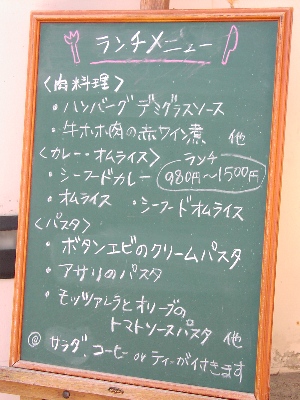 ランチメニュー
〈肉料理〉
・ハンバーグ デミグラスソース
・牛ホホ肉の赤ワイン煮 他
〈カレー・オムライス〉
・シーフードカレー
ランチ
980円〜1500円
・オムライス ・シーフードオムライス
〈パスタ〉
・ボタンエビのクリームパスタ
・アサリのパスタ
・モッツァレラとオリーブの
トマトソースパスタ 他
@ サラダ、コーヒー or ティーが付きます